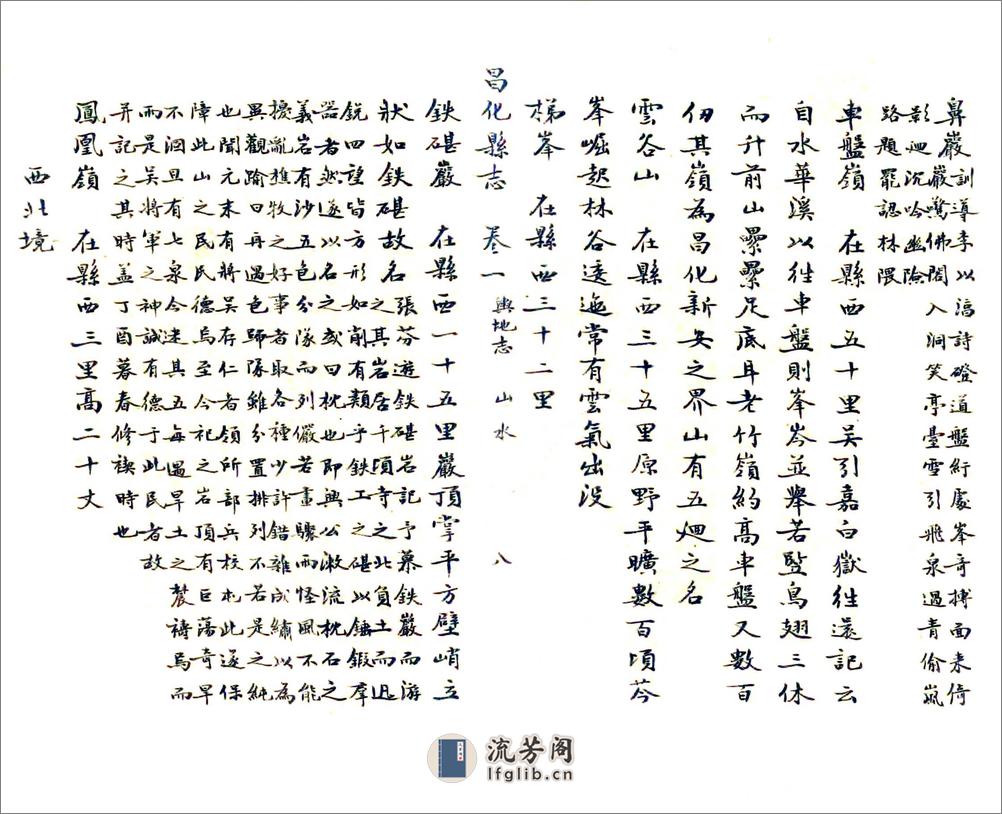 鼻巖訓導李以濤詩磴道盤紆處峯奇搏面来倚
影迴巖驚佛閣入洞笑亭臺雪引飛泉過青偷嵐
路迴沉吟幽險
題罷認林隈
車盤嶺 在縣西五十里吳引嘉白嶽往還記云
自水華溪以往車盤則峯岑並舉若監鳥翅三休
而升前山纍纍足底耳老竹嶺約高車盤又數百
仞其嶺為昌化新安之界山有五廻之名
雲谷山 在縣西三十五里原野平曠數百頃苓
峯崛起林谷逶迤常有雲氣出没
梯峯 在縣西三十二里
昌化縣志 卷一 輿地志 山水 八
鉄碪巖 在縣西一十五里巖頂掌平方壁峭立
狀如鉄碪故名張芬遊鉄碪岩記予慕鉄巖而游
之其岩居千頃寺之北負土而迅
銳四望皆方形如削有類乎鉄工之碪以錘鍛羣
器者然遂以名之或曰枕也即興公漱流枕石之
義岩有沙五色分隊而列儼若畫驟雨怪風不能
擾亂樵牧之好事者取各種少許錯雜成繡以為
異觀踰日再過色歸隊雖分置排列不若是之純
也聞元末有將吳存仁者領所部兵校札此遂保
障此山之民民德焉至今祀之岩頂有巨蕩奇旱
不涸旦有七泉今迷其五每遇旱土之農禱焉而
而是吳將軍之神誠有德于此民者故
并記之其時盖丁酉暮春修禊時也
鳳凰嶺 在縣西三里高二十丈
西北境
流芳阁
lfglib.cn